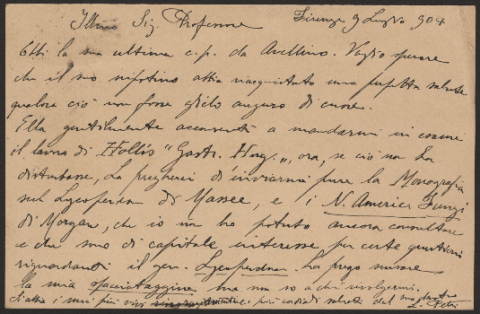 Illmo Sig. Professore Firenze 9 Luglio 904
Ebbi la sua ultima c.p. da Avellino. Voglio sperare
che il suo nipotino abbia riacquistato una perfetta salute
qualora ciò non fosse glielo auguro di cuore.
Ella gentilmente acconsentì a mandarmi in esame
il lavoro di Hollós "Gastr. Hung.", ora, se ciò non ha
disturbarla, La pregherei d'inviarmi pure la Monografia
sul Lycoperdon di Massee, e i N. America Fungi
di Morgan, che io non ho potuto ancora consultare
e che sono di capitale interesse per certe questioni
riguardanti il gen. Lycoperdon. La prego scusare
la mia sfacciataggine ma non so a chi rivolgermi.
i miei più vivi e più cordiali saluti dal suo
L. Petri